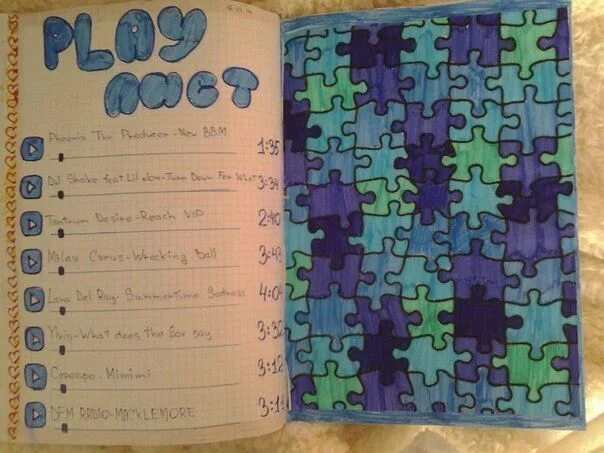 PLAY
ЛИСТ
Phoenix Thr Producer-New BBM 1:35
DJ Shake feat Lil Jon-Turn Down For What 3:34
Tantrum Desire-Reach VIP 2:40
Miley Cyrus-Wrecking ball 3:43
Lana Del Ray-Summertime Sadness
Ylvis-What does the fox say 3:32
Mimimi 3:12
DFM RADIO-MACKLEMORE